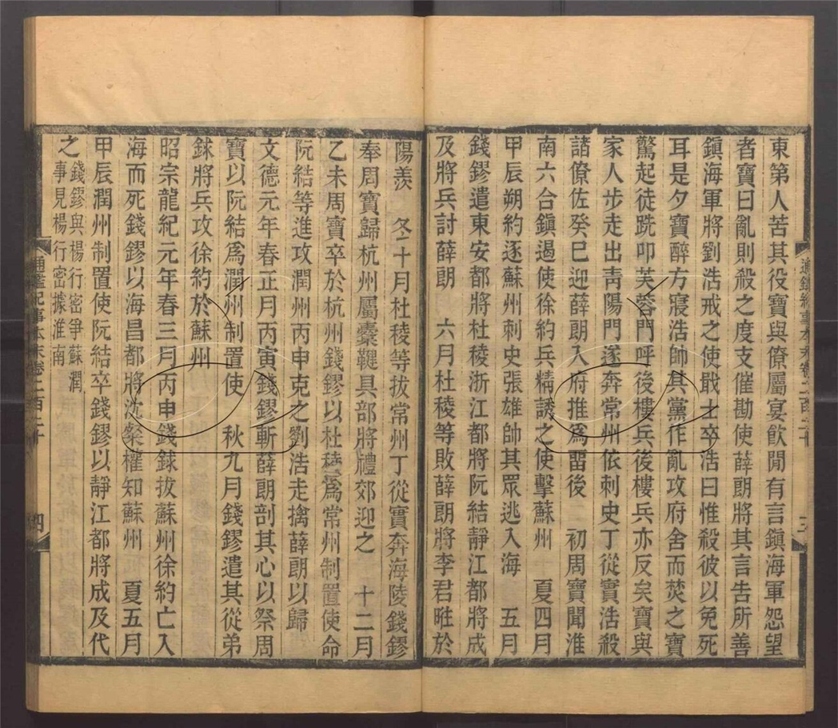 東第人苦其役寶與僚屬宴飲閒有言鎭海軍怨望
者寶曰亂則殺之度支催勘使薛朗將其言告所善
鎭海軍將劉浩戒之使戢士卒浩曰惟殺彼以免死
耳是夕寶醉方寢浩帥其黨作亂攻府舍而焚之寶
驚起徒跣叩芙蓉門呼後樓兵後樓兵亦反矣寶與
家人步走出靑陽門遂奔常州依刺史丁從實浩殺
諸僚佐癸巳迎薛朗入府推爲畱後　初周寶聞淮
南六合鎭遏使徐約兵精誘之使擊蘇州　夏四月
甲辰朔約逐蘇州刺史張雄帥其眾逃入海　五月
錢鏐遣東安都將杜稜浙江都將阮結靜江都將成
及將兵討薛朗　六月杜稜等敗薛朗將李君暀於
陽羨　冬十月杜稜等拔常州丁從實奔海陵錢鏐
奉周寶歸杭州屬櫜鞬具部將禮郊迎之　十二月
乙未周寶卒於杭州錢鏐以杜稜爲常州制置使命
阮結等進攻潤州丙申克之劉浩走擒薛朗以歸
文德元年春正月丙寅錢鏐斬薛朗剖其心以祭周
寶以阮結爲潤州制置使　秋九月錢鏐遣其從弟
銶將兵攻徐約於蘇州
昭宗龍紀元年春三月丙申錢銶拔蘇州徐約亡入
海而死錢鏐以海昌都將沈粲權知蘇州　夏五月
甲辰潤州制置使阮結卒錢鏐以靜江都將成及代
之錢鏐與楊行密爭蘇潤
事見楊行密據淮南
通鑑紀事本末卷二百二十
四